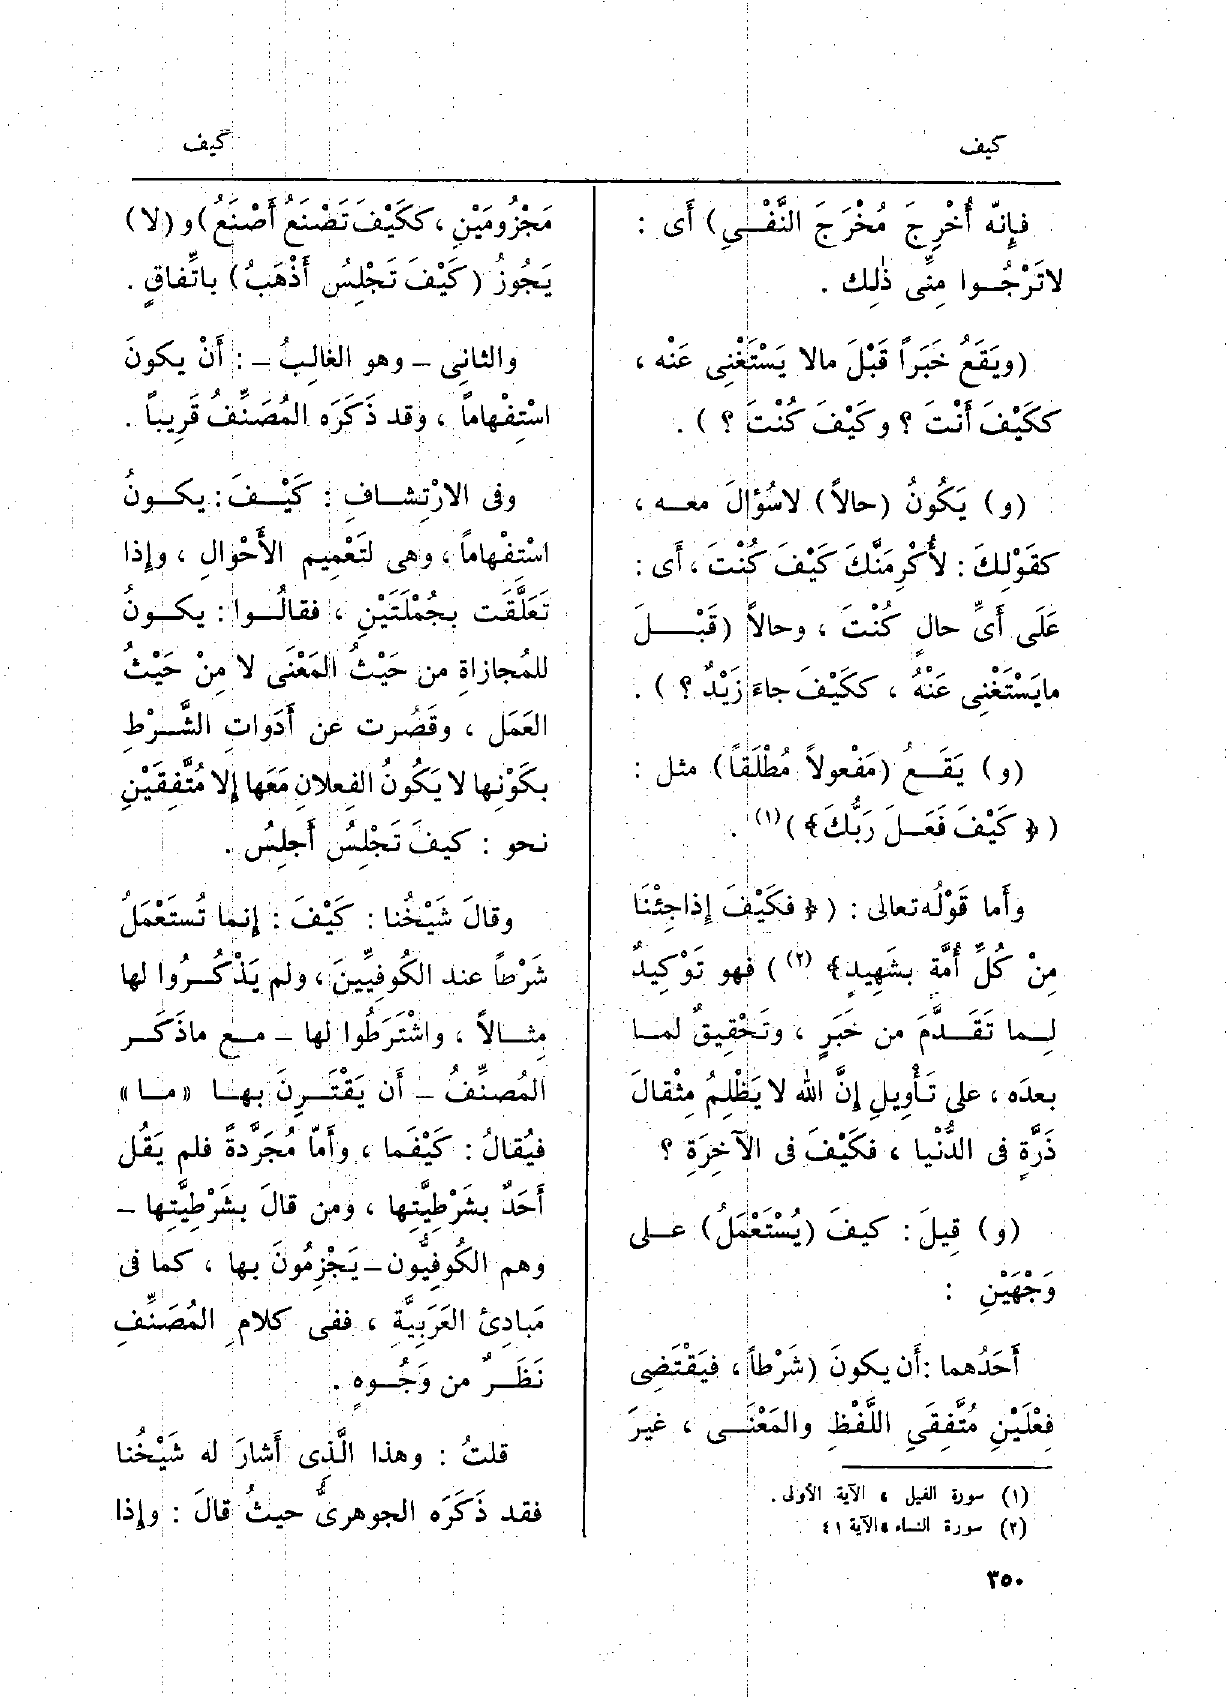 كيف
كيف
فإِنّه أُخْرِجَ مُخْرَجَ النَّفْـىِ) أَى :
لاتَرْجُـوا مِنِّى ذٰلِك .
(ويَقَعُ خَبَراً قَبْلَ مالا يَسْتَغْنِى عَنْه ،
ككَيْفَ أَنْتَ ؟ وكَيْفَ كُنْتَ ؟ ) .
(و) يَكُونُ (حالاً) لاسُؤالَ معـه ،
كقَوْلِكَ : لأُكْرِمَنَّكَ كَيْفَ كُنْتَ ، أَى :
عَلَى أَىِّ حالٍ كُنْتَ ، وحالاً (قَبْـلَ
مايَسْتَغْنِى عَنْهُ ، ككَيْفَ جاءَ زَيْدٌ ؟ ) .
(و) يَقَـعُ (مَفْعولاً مُطْلَقاً) مثل :
(﴿ كَيْفَ فَعَـلَ رَبُّكَ﴾)(١) .
وأَما قَوْلُه تعالى : (﴿ فكَيْفَ إِذا جِئْنَا
مِنْ كُلِّ أُمَّةٍ بشَهِيدٍ﴾ (٢)) فهو تَوْكِيدٌ
لِـما تَقَـدَّمَ من خَبَرٍ ، وتَحْقِيقٌ لمـا
بعدَه ، على تَأْوِيلِ إِنَّ الله لا يَظْلِمُ مِثْقالَ
ذَرَّةٍ فى الدُّنْيا ، فكَيْفَ فى الآخِرَةِ ؟
(و) قِيلَ : كيفَ (يُسْتَعْمَلُ) علـى
وَجْهَيْنِ :
أَحَدُهما : أَن يكونَ (شَرْطاً ، فيَقْتَضِى
فِعْلَيْنِ مُتَّفِقَىِ اللَّفْظِ والمَعْنَـى ، غيرَ
(١) سورة الفيل ، الآية الأولى .
(٢) سورة النساء ، الآية ٤١
٣٥٠
مَجْزُومَيْنِ ، ككَيْفَ تَصْنَعُ أَصْنَعُ) و (لا)
يَجُوزُ (كَيْفَ تَجْلِسُ أَذْهَبُ) باتِّفاقٍ .
والثانِى – وهو الغالِبُ – : أَنْ يكونَ
اسْتِفْهاماً ، وقد ذَكَرَه المُصَنِّفُ قَرِيباً .
وفى الارْتِشـافِ : كَيْـفَ : يكـونُ
اسْتِفْهاماً ، وهى لتَعْمِيمِ الأَحْوالِ ، وإِذا
تَعَلَّقَت بجُمْلَتَيْنِ ، فقالُـوا : يكـونُ
للمُجازاةِ من حَيْثُ المَعْنَى لا مِنْ حَيْثُ
العَمَل ، وقَصُرت عن أَدَواتِ الشَّـرْطِ
بكَوْنِها لا يَكُونُ الفِعلانِ مَعَها إِلا مُتَّفِقَيْنِ
نحو : كيفَ تَجْلِسُ أَجلِسُ .
وقالَ شَيْخُنا : كَيْفَ : إِنما تُستَعْمَلُ
شَرْطاً عند الكُوفِيِّينَ ، ولم يَذْكُـرُوا لها
مِثـالاً ، واشْتَرَطُوا لها – مـع ماذَكَـر
المُصنِّفُ – أَن يَقْتَـرِنَ بهـا «مـا»
فيُقالُ : كَيْفَما ، وأَمّا مُجَرَّدةً فلم يَقُل
أَحَدٌ بشَرْطِيَّتِها ، ومن قالَ بشَرْطِيَّتِها –
وهم الكُوفِيُّون – يَجْزِمُونَ بها ، كما فى
مَبادِئِ العَرَبِيَّةِ ، ففى كلامِ المُصَنِّفِ
نَظَـرٌ من وَجُـوهٍ .
قلتُ : وهذا الَّذِى أَشارَ له شَيْخُنا
فقد ذَكَرَه الجوهرىُّ حيثُ قالَ : وإِذا